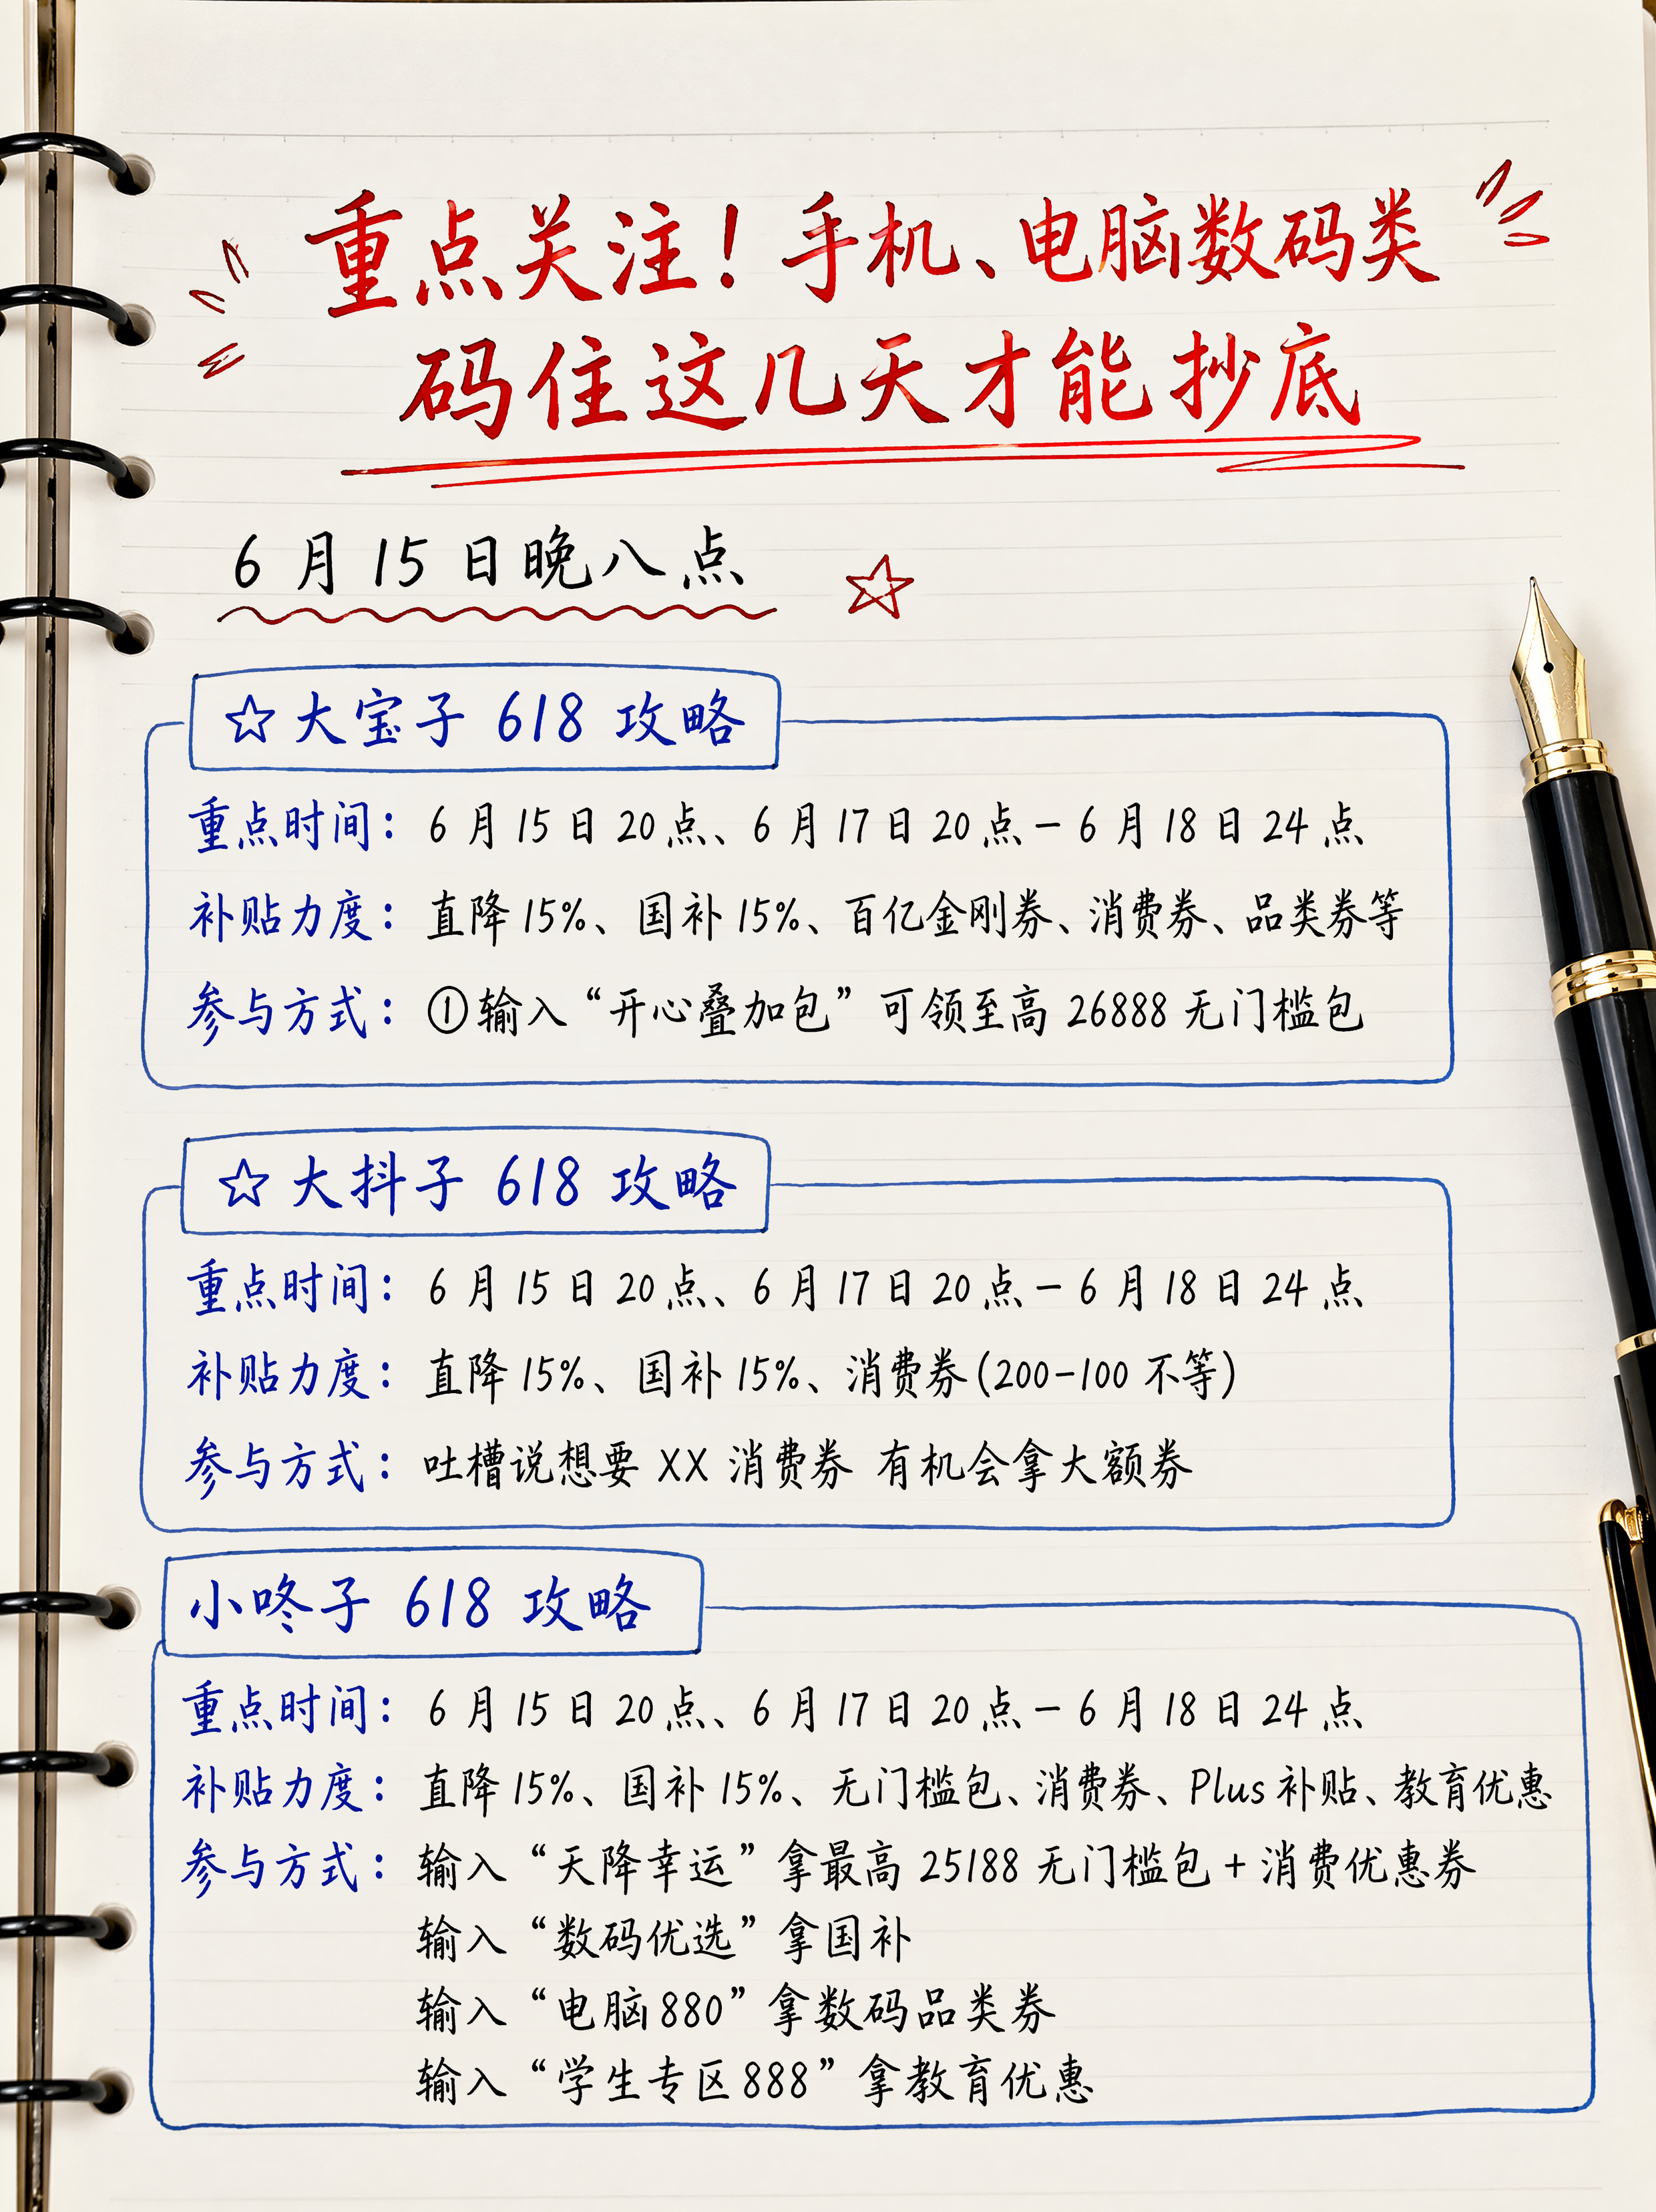 重点关注！手机、电脑数码类
码住这几天才能抄底
6月15日晚八点
☆大宝子 618 攻略
重点时间：6月15日20点、6月17日20点－6月18日24点
补贴力度：直降15%、国补15%、百亿金刚券、消费券、品类券等
参与方式：①输入“开心叠加包”可领至高26888无门槛包
☆大抖子 618 攻略
重点时间：6月15日20点、6月17日20点－6月18日24点
补贴力度：直降15%、国补15%、消费券(200-100不等)
参与方式：吐槽说想要XX消费券 有机会拿大额券
小咚子 618 攻略
重点时间：6月15日20点、6月17日20点－6月18日24点
补贴力度：直降15%、国补15%、无门槛包、消费券、Plus补贴、教育优惠
参与方式：输入“天降幸运”拿最高25188无门槛包+消费优惠券
输入“数码优选”拿国补
输入“电脑880”拿数码品类券
输入“学生专区888”拿教育优惠